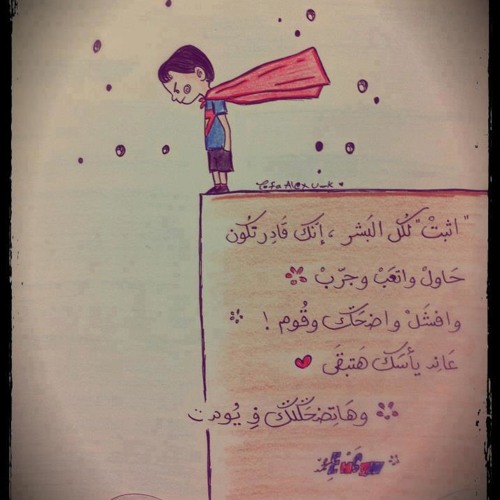 "اثبتْ" لكُل البَشر ، إنَّكَ قَادِر تكُون
حَاولْ واتعَبْ وجرّبْ
وافشَلْ واضحَكْ وقُوم !
عَانِد يأسَك هَتبقَى
وهَاتِضحَكلَكْ فِ يُوم